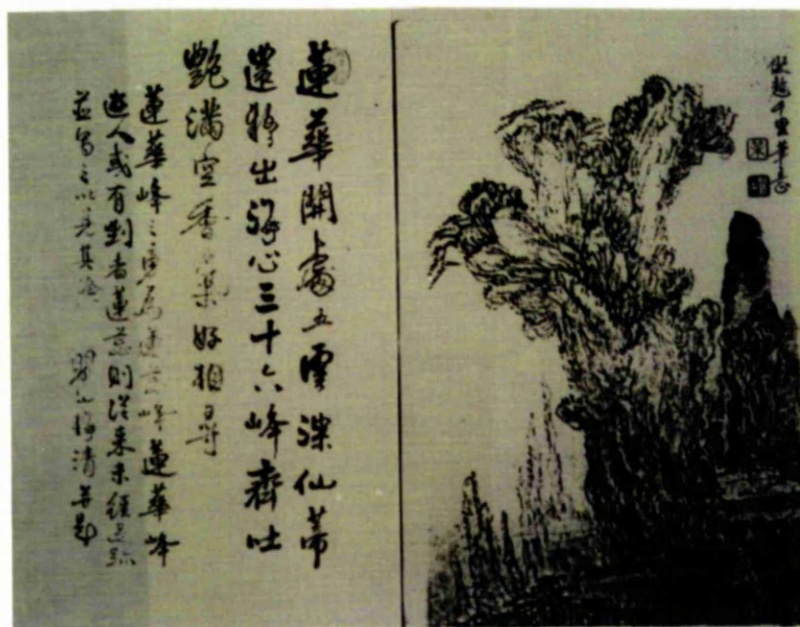 倣趙千里筆意
蓮華開處五雲深仙蒂
還移出海心三十六峰齊吐
艷滿空香好相尋
蓮華峰之旁為蓮蕊峰蓮華峰
遊人或有到者蓮蕊則從來未經足跡
並寫之以見其險 瞿山梅清并題